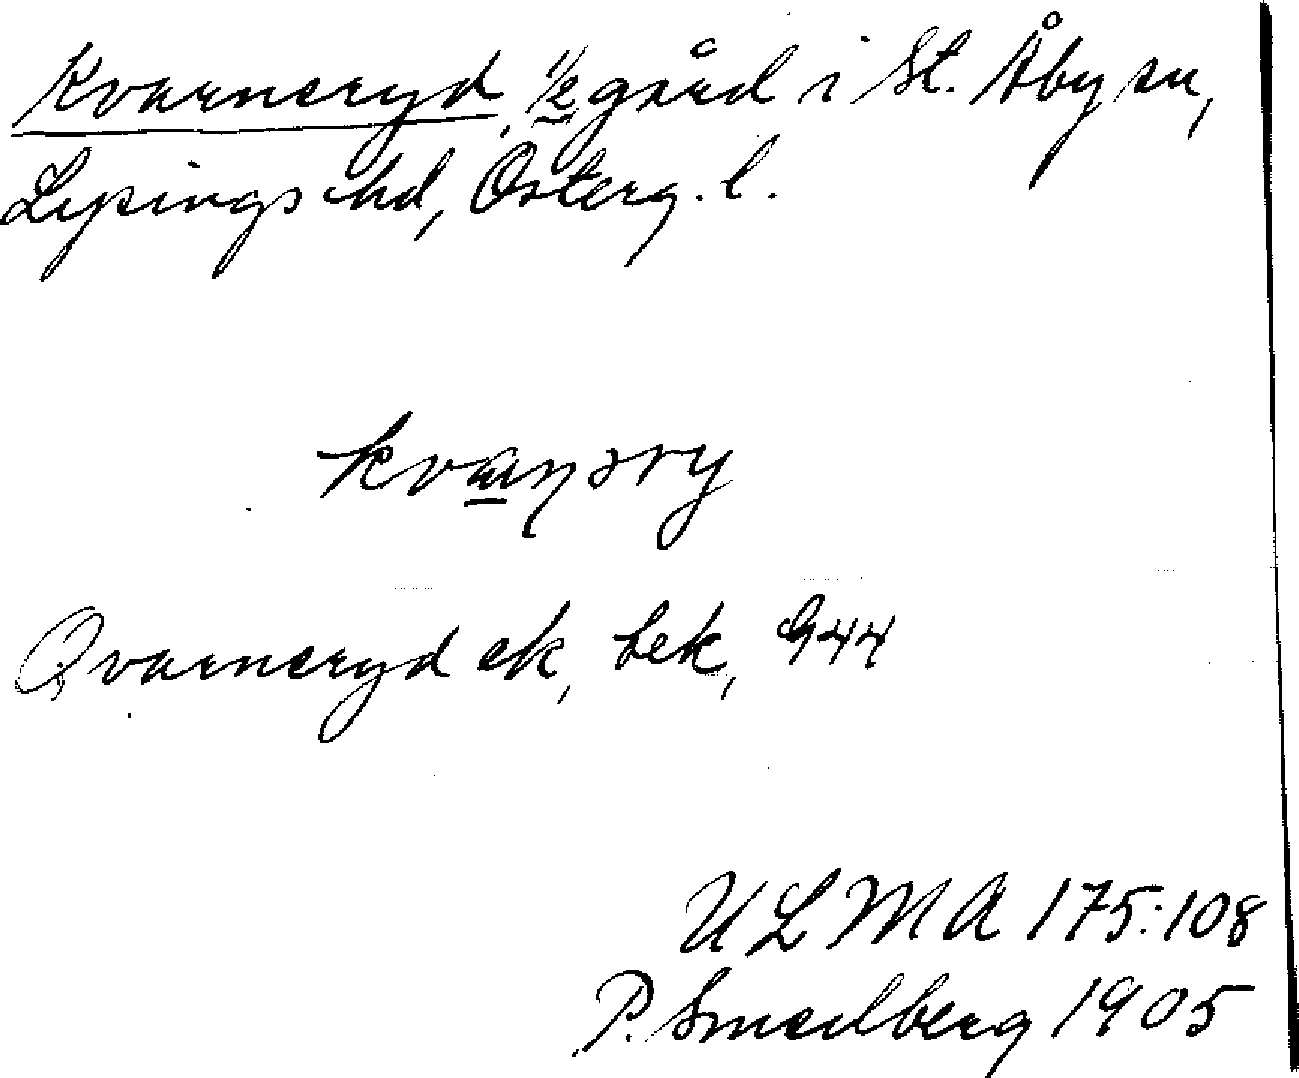 Kvarneryd, 1/2 gård i St. Åby sn,
Lysings hd, Österg. l.
Qvarneryd ek, bek, 944
ULMA 175:108
P. Smedberg 1905